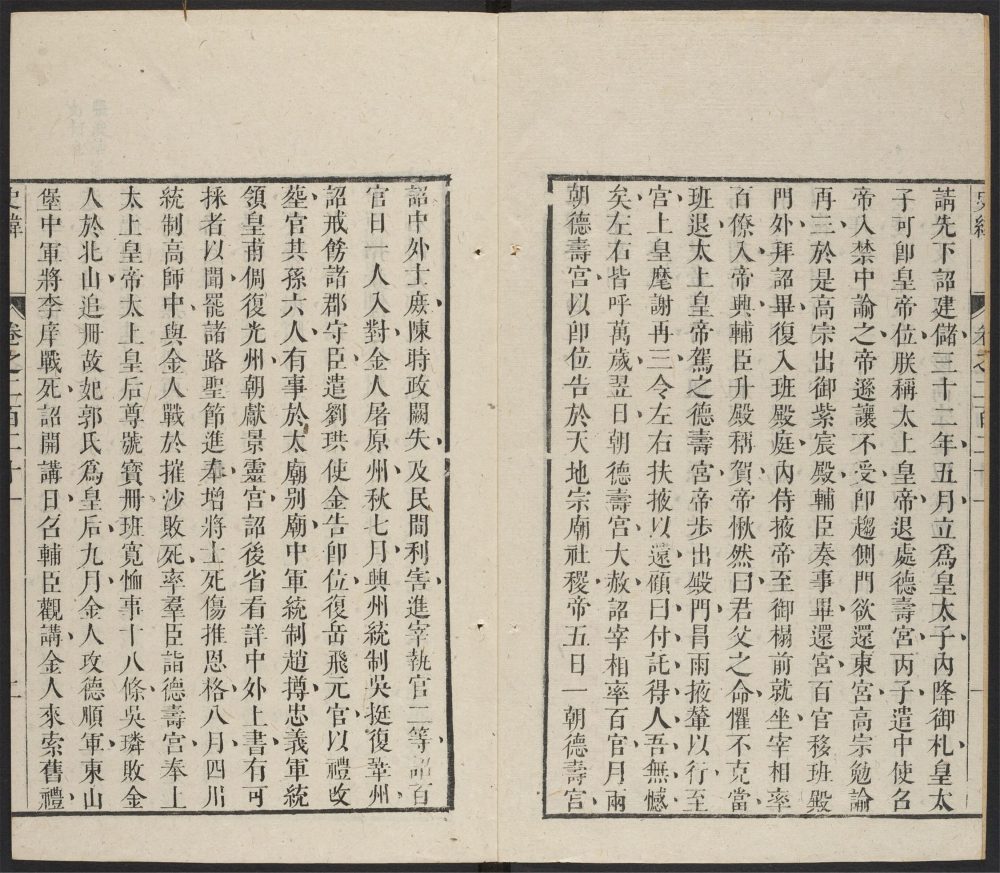 請先下詔建儲三十二年五月立爲皇太子內降御札皇太
子可卽皇帝位朕稱太上皇帝退處德壽宮丙子遣中使召
帝入禁中諭之帝遜讓不受卽趨側門欲還東宮高宗勉諭
再三於是高宗出御紫宸殿輔臣奏事畢還宮百官移班殿
門外拜詔畢復入班殿庭內侍掖帝至御榻前就坐宰相率
百僚入帝興輔臣升殿稱賀帝愀然曰君父之命懼不克當
班退太上皇帝駕之德壽宮帝步出殿門冒雨掖輦以行至
宮上皇麾謝再三令左右扶掖以還顧曰付託得人吾無憾
矣左右皆呼萬歲翌日朝德壽宮大赦詔宰相率百官月兩
朝德壽宮以卽位告於天地宗廟社稷帝五日一朝德壽宮
詔中外士庶陳時政闕失及民間利害進宰執官二等詔百
官日一人入對金人屠原州秋七月興州統制吳挺復鞏州
詔戒飭諸郡守臣遣劉珙使金告卽位復岳飛元官以禮改
塟官其孫六人有事於太廟別廟中軍統制趙撙忠義軍統
領皇甫倜復光州朝獻景靈宮詔後省看詳中外上書有可
採者以聞罷諸路聖節進奉增將士死傷推恩格八月四川
統制高師中與金人戰於摧沙敗死率羣臣詣德壽宮奉上
太上皇帝太上皇后尊號寶冊班寬恤事十八條吳璘敗金
人於北山追冊故妃郭氏爲皇后九月金人攻德順軍東山
堡中軍將李庠戰死詔開講日召輔臣觀講金人來索舊禮
史緯
卷之二百二十一